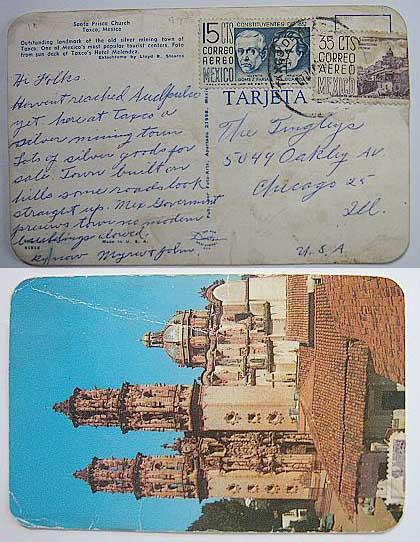 Santa Prisca Church
Taxco, Mexico
Outstanding landmark of the old silver mining town of
Taxco. One of Mexico's most popular tourist centers. Foto
from sun deck of Taxco's Hotel Melendez.
Ektachrome by Lloyd R. Stearns
Hi Folks
Havent reached Acapulco
yet here at Taxco a
silver mining town
Lots of silver goods for
sale. Town built on
hills some roads look
straight up. Mex Government
town no modern
buildings allowed.
Made in U.S.A.
Myrt + John
15 CTS
CORREO
AEREO
MEXICO
CONSTITUYENTES DE 1857
35 CTS
CORREO
AEREO
MEXICO
TARJETA
The Tingleys
5049 Oakley Av
Chicago 25
Ill.
U.S.A